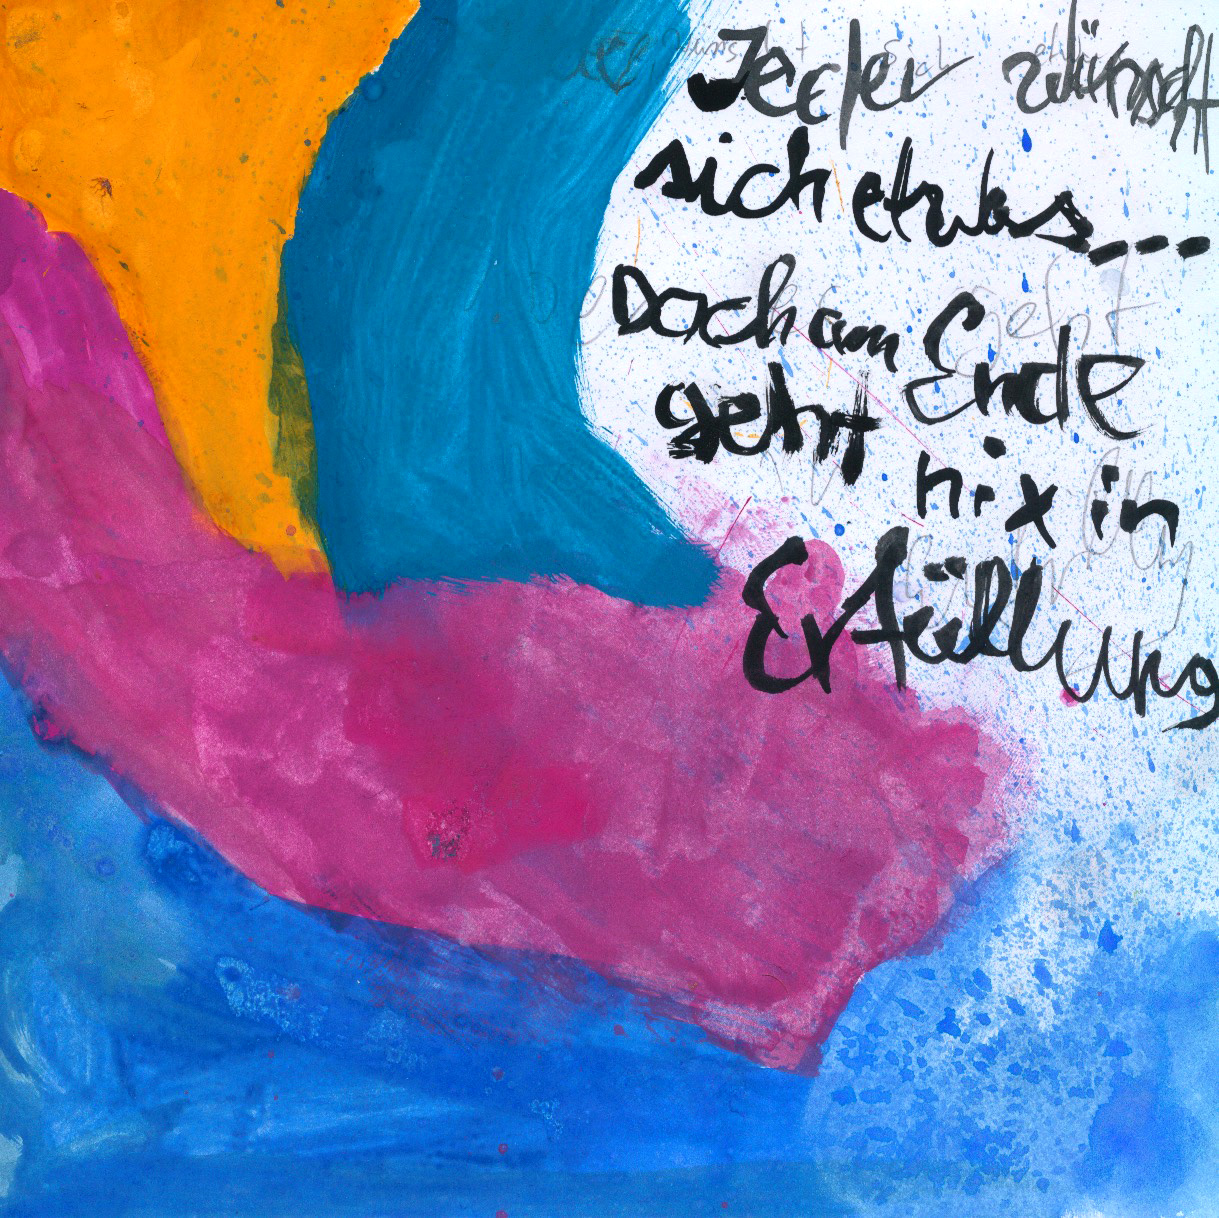 Jeder wünscht
sich etwas...
Doch am Ende
geht nix in
Erfüllung